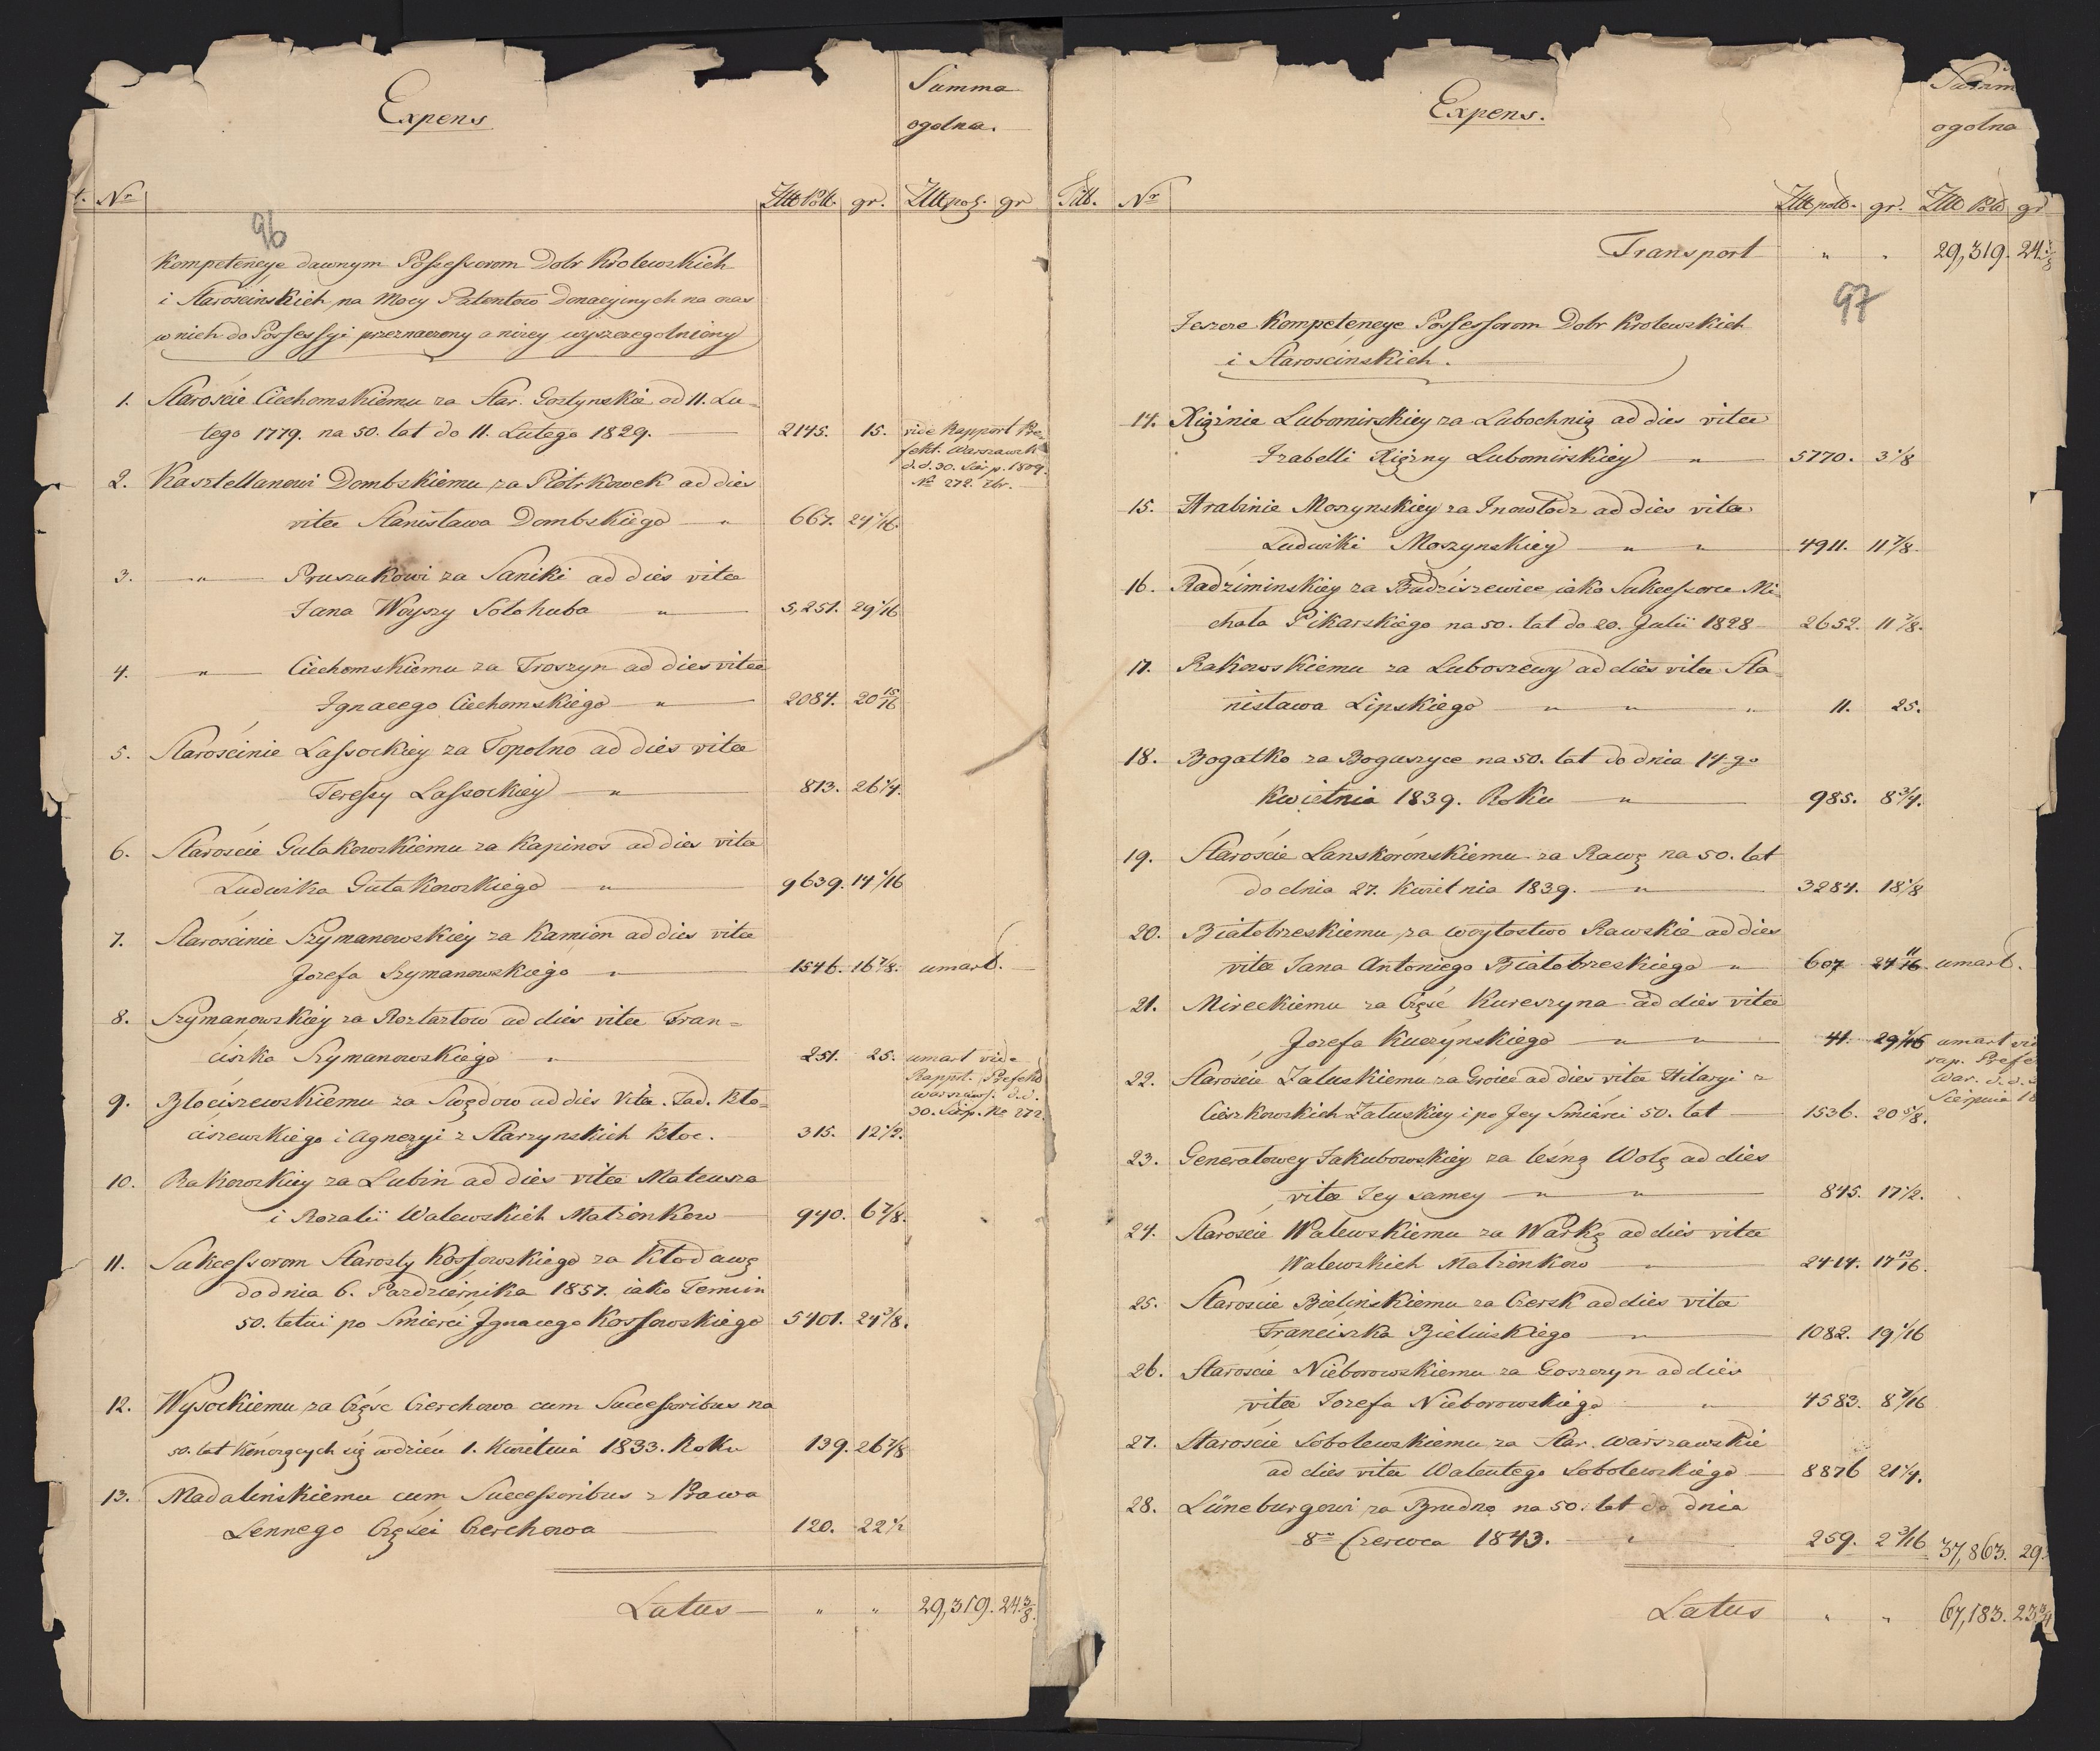 Expens
Summa
ogolna.
t. Nro Złł Poll. gr. Złł pol. gr
96
Kompetencye dawnym Possessorom Dobr Krolewskich
i Starościnskich na Mocy Patentow Donacyinych na czas
w nich do Possessyi przeznaczony a niżey wyszczegolniony
1. Starościie Ciechomskiemu za Star. Gostynskie od 11. Lu=
tego 1779. na 50. lat do 11. Lutego 1829. 2145. 15. vide Rapport Pre=
fekt. Warszawsk
d.d. 30. Sierp. 1809.
No 272. Zbr.
2. Kasztellanowi Dombskiemu za Piotrkowek ad dies
vitae Stanisława Dombskiego " 667. 24 1/16.
3. " Pruszakowi za Saniki ad dies vitae
Jana Woyszy Solohuba " 5,251. 29 1/16
4. " Ciechomskiemu za Troszyn ad dies vitae
Ignacego Ciechomskiego " 2084. 20 15/16
5. Starościnie Lassockiey za Topolno ad dies vitae
Teressy Lassockiey " 813. 26 1/4.
6. Staroście Gutakowskiemu za Kapinos ad dies vitae
Ludwika Gutakowskiego " 9639. 14 1/16
7. Starościnie Szymanowskiey za Kamion ad dies vitae
Jozefa Szymanowskiego " 1546. 16 7/8. umarł.
8. Szymanowskiey za Roztartow ad dies vitae Fran=
ciszka Szymanowskiego " 251. 25. umarł vide
Rappt. Prefekt
Warszaws. d.d.
30. Sierp. No 272.
9. Błociszewskiemu za Swędow ad dies Vitae. Tad. Bło=
ciszewskiego i Agneszyi z Starzynskich Błoc. 315. 12 1/2.
10. Rakowskiey za Lubin ad dies vitae Mateusza
i Rozalii Walewskich Małżonkow 940. 6 7/8.
11. Sukcessorom Starosty Kossowskiego za Kłodawę
do dnia 6. Pazdziernika 1857. iako Termin
50. letni po Smierci Ignacego Kossowskiego 5401. 24 3/8.
12. Wysockiemu za Część Czerchowa cum Successoribus na
50. lat Kończących się w dniu 1. Kwietnia 1833. Roku 139. 26 7/8
13. Madalinskiemu cum Successoribus z Prawa
Lennego Części Czerchowa 120. 22 1/2
Latus " " 29,319. 24 3/8.
Expens.
Summ
ogolna
Titt. Nro Złł poll. gr. Złł Poll gr
Transport " " 29,319. 24 3/8
97
Jeszcze Kompetencye Possessorom Dobr Krolewskich
i Starościnskich.
14. Xiężnie Lubomirskiey za Lubochnią ad dies vitae
Izabelli Xiężny Lubomirskiey " 5770. 3 1/8
15. Hrabinie Moszynskiey za Inowłodz ad dies vitae
Ludwiki Moszynskiey " " 4911. 11 7/8.
16. Radziminskiey za Budziszewice iako Sukcessorce Mi=
chała Pikarskiego na 50. lat do 20. Julii 1828 2652. 11 7/8.
17. Rakowskiemu za Luboszewy ad dies vitae Sta=
nisława Lipskiego " " " 11. 25.
18. Bogatko za Boguszyce na 50. lat do dnia 14go
Kwietnia 1839. Roku " 985. 8 3/4.
19. Staroście Lanskorónskiemu za Rawę na 50. lat
do dnia 27. Kwietnia 1839. " 3284. 18 1/8
20. Białobrzeskiemu za woytostwo Rawskie ad dies
vitae Jana Antoniego Białobrzeskiego " 607 24 11/16. umarł.
21. Mireckiemu za Część Kureszyna ad dies vitae
Jozefa Kuczynskiego " " 41. 29 1/16 umarł vid
rap. Prefe
War. d.d.
Sierpnia 18
22. Staroście Załuskiemu za Groiec ad dies vitae Hilaryi z
Cieszkowskich Załuskiey i po Jey Smierci 50. lat 1536. 20 5/8.
23. Generałowey Jakubowskiey za leśną Wolę ad dies
vitae Jey samey " " 845. 17 1/2.
24. Staroście Walewskiemu za Warkę ad dies vitae
Walewskich Małżonkow " 2414. 17 13/16.
25. Staroście Bielinskiemu za Czersk ad dies vitae
Franciszka Bielinskiego " 1082. 19 1/16
26. Staroscie Nieborowskiemu za Goszczyn ad dies
vitae Jozefa Nieborowskiego " 4583. 8 7/16
27. Staroście Sobolewskiemu za Star. Warszawskie
ad dies vitae Walentego Sobolewskiego 8876 21 1/4.
28. Lüneburgowi za Brudno na 50. lat do dnia
8o Czerwca 1843. " 259. 2 3/16 37,863. 29
Latus " " 67,183. 23 3/4